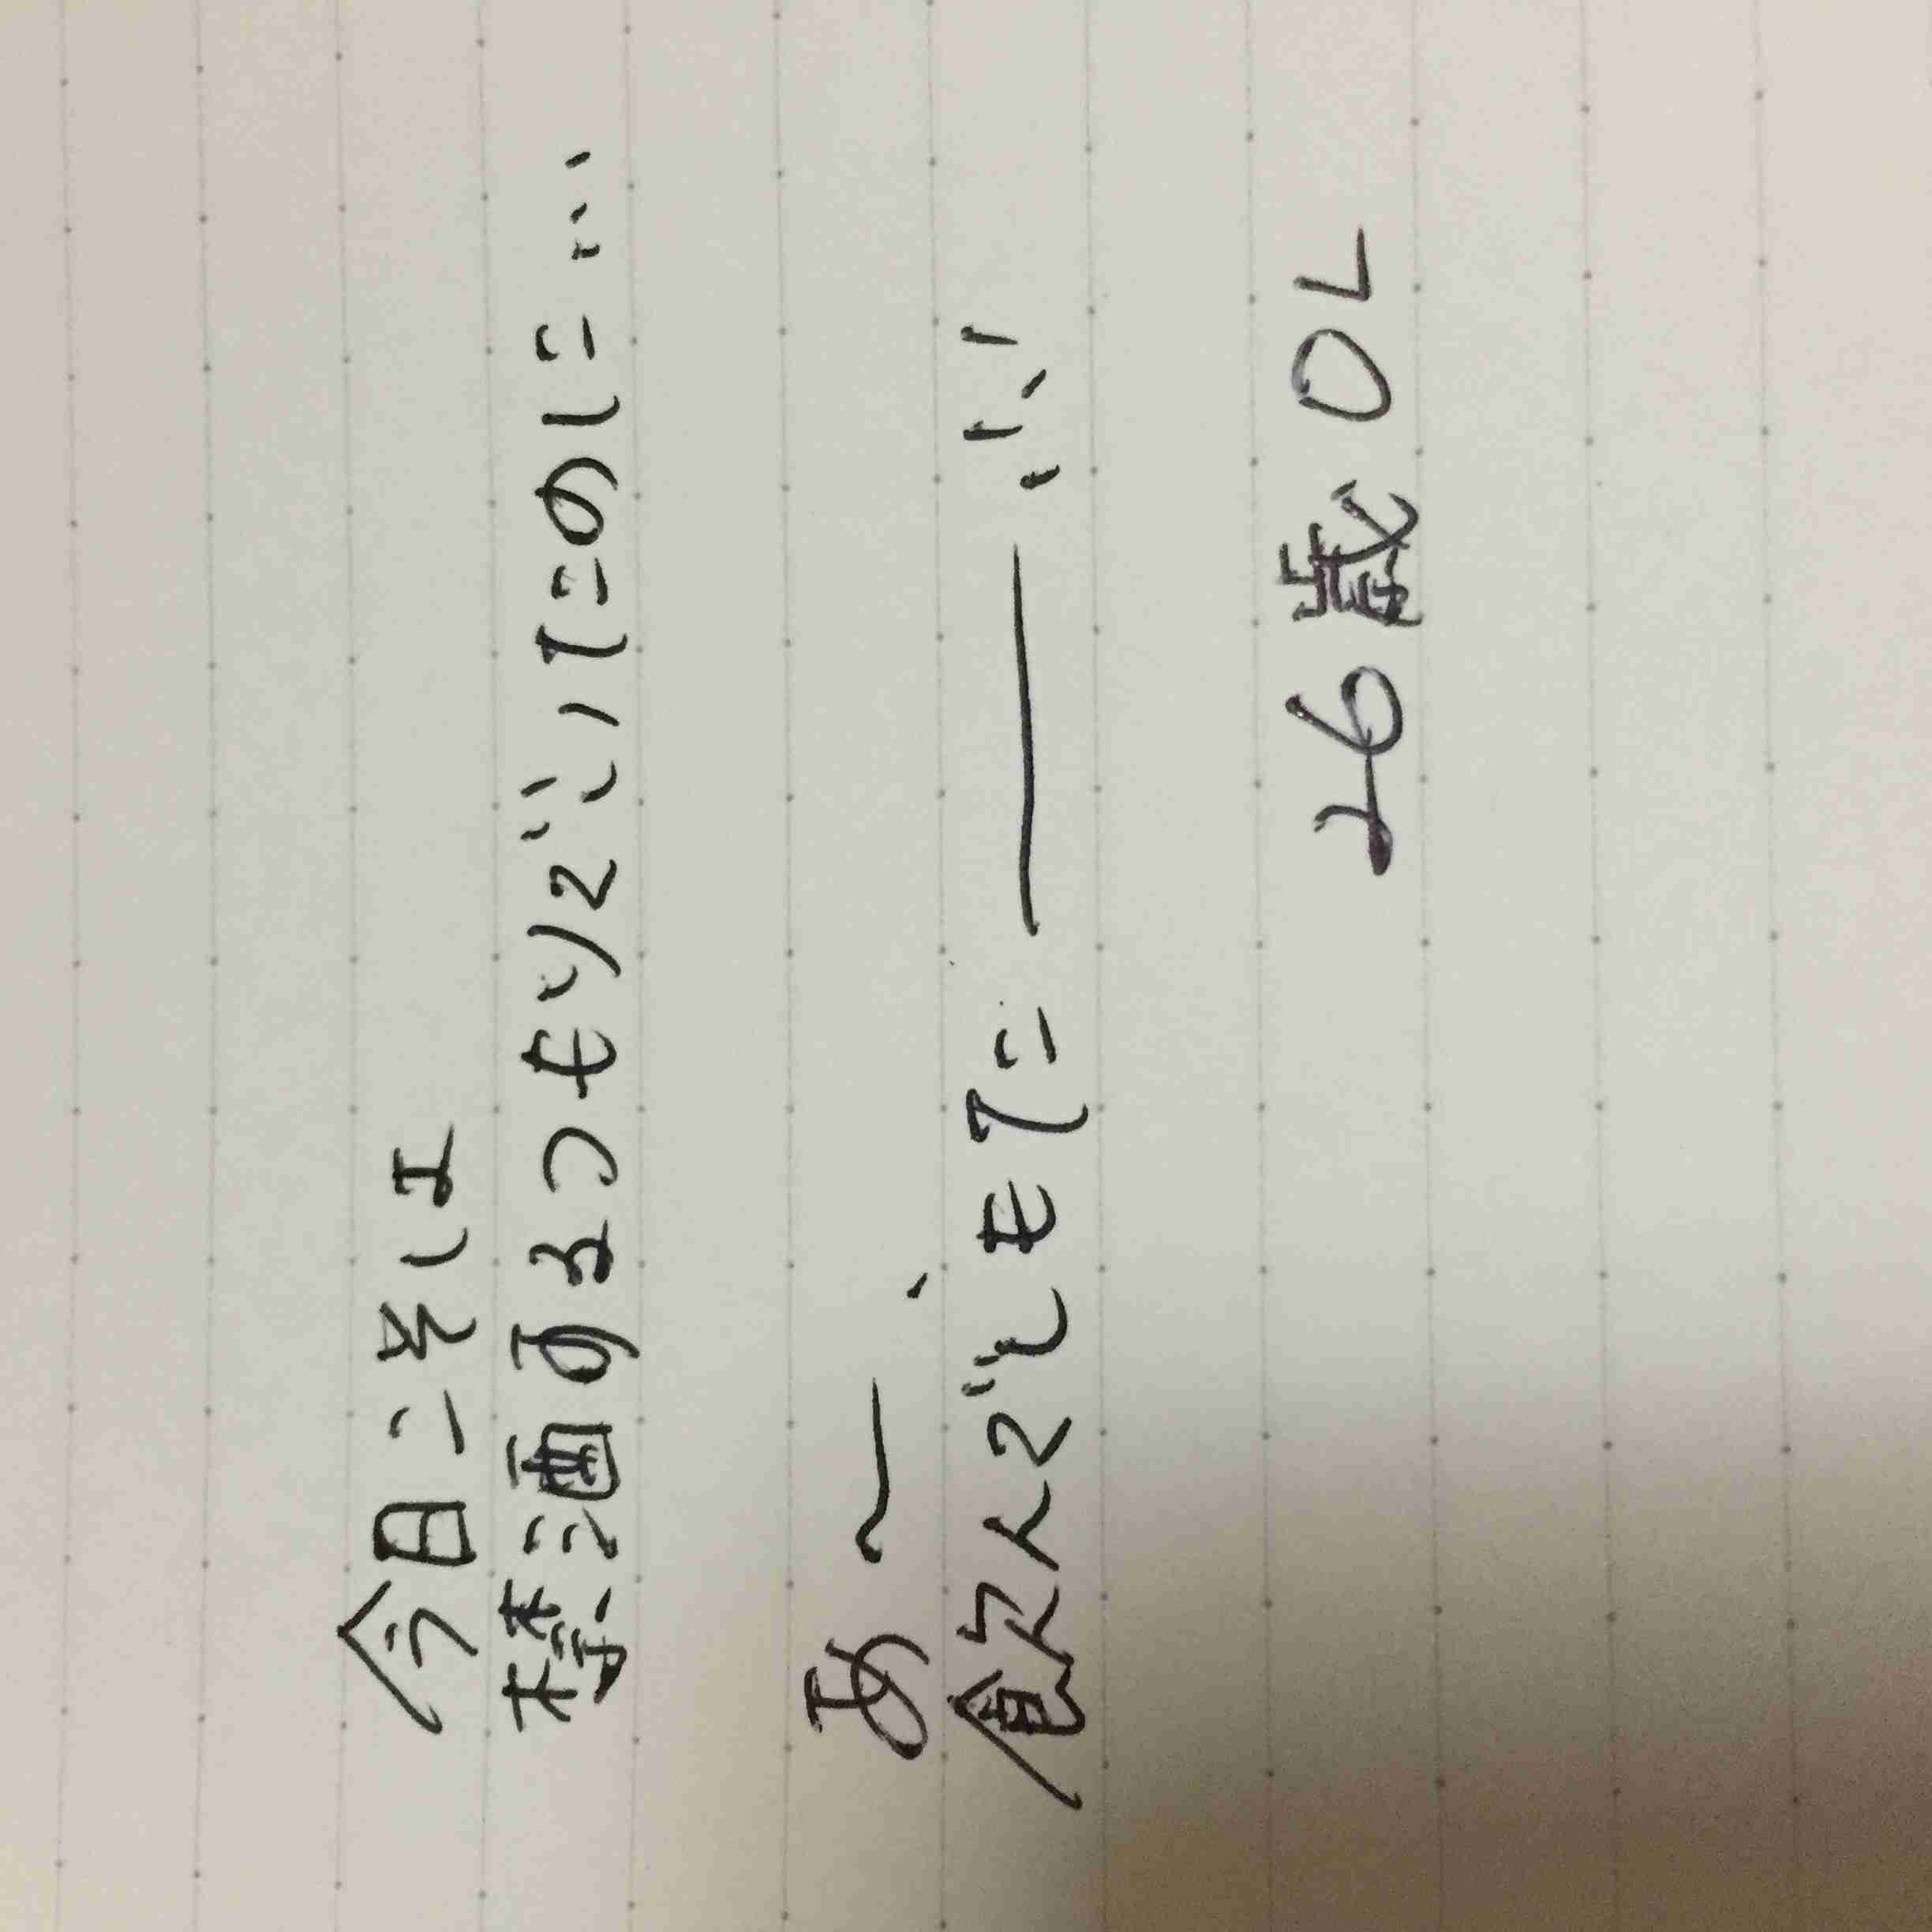 今日こそは
禁酒するつもりでいたのに…
あ〜、
飲んでしもた――!!
26歳OL